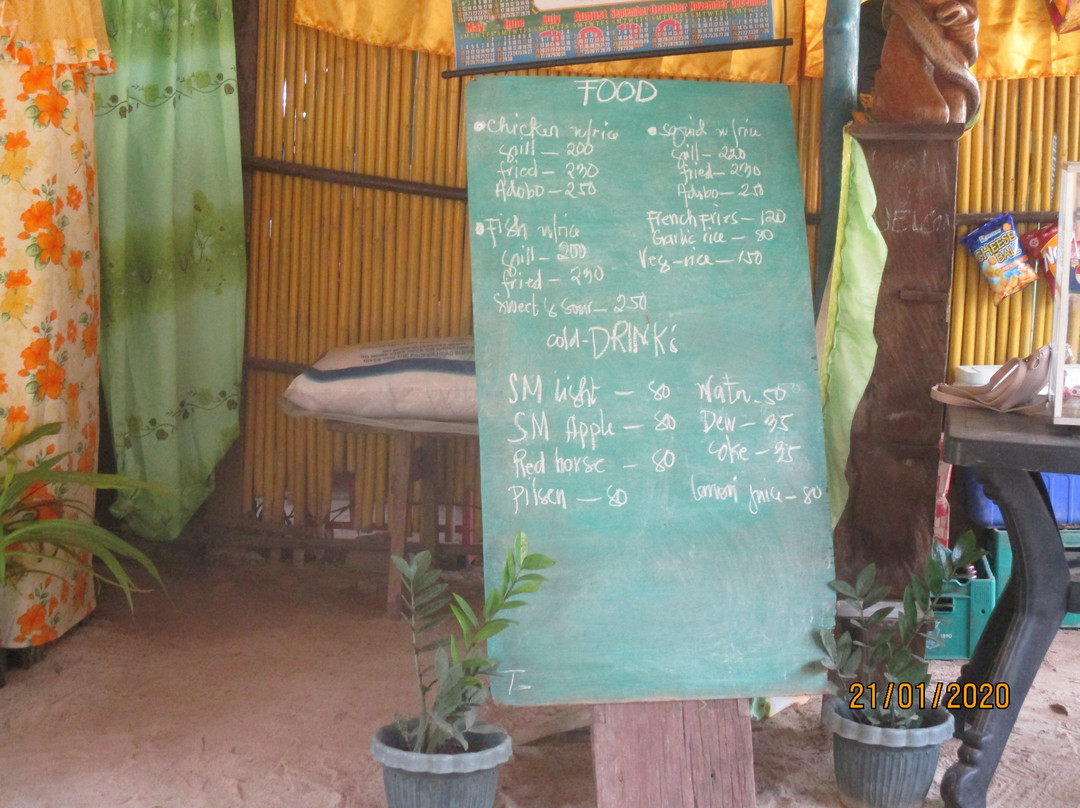 May June July August September October November December
2020
FOOD
• Chicken w/rice
grill — 200
fried — 230
Adobo — 250
• Fish w/rice
grill — 200
fried — 230
Sweet & Sour — 250
• Squid w/rice
grill — 220
fried — 230
Adobo — 250
French Fries — 120
Garlic rice — 80
Veg-rice — 150
cold-DRINK's
SM Light — 80
SM Apple — 80
Red horse — 80
Pilsen — 80
Water - 50
Dew — 35
Coke — 35
lemon juice — 80
WELCOM
CHEESE
21/01/2020